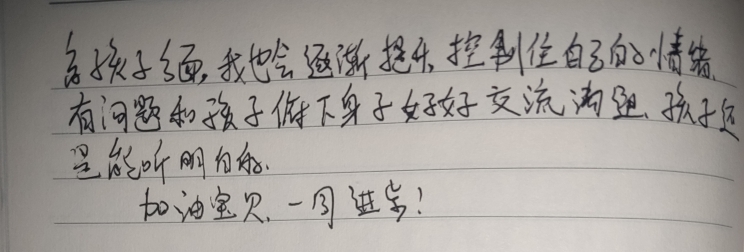 孩子面,我也会逐渐提升,控制住自己的情绪,
有问题和孩子俯下身子好好交流沟通、孩子还
是能听明白的.
加油宝贝,一同进步!